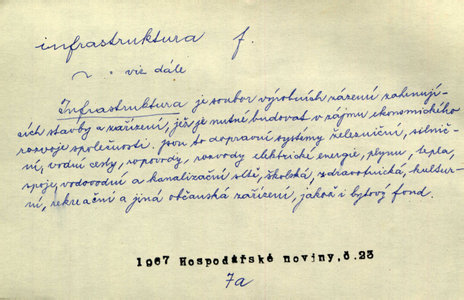 infrastruktura f.
~ : viz dále
Infrastruktura je soubor výrobních zázemí zahrnují-
cích stavby a zařízení, jež je nutné budovat v zájmu ekonomického
rozvoje společnosti. Jsou to dopravní systémy železniční, silnič-
ní, vodní cesty, ropovody, rozvody elektrické energie, plynu, tepla,
spoje, vodovodní a kanalizační sítě, školská, zdravotnická, kultur-
ní, rekreační a jiná občanská zařízení, jakož i bytový fond.
1967 Hospodářské noviny,č.23
7a